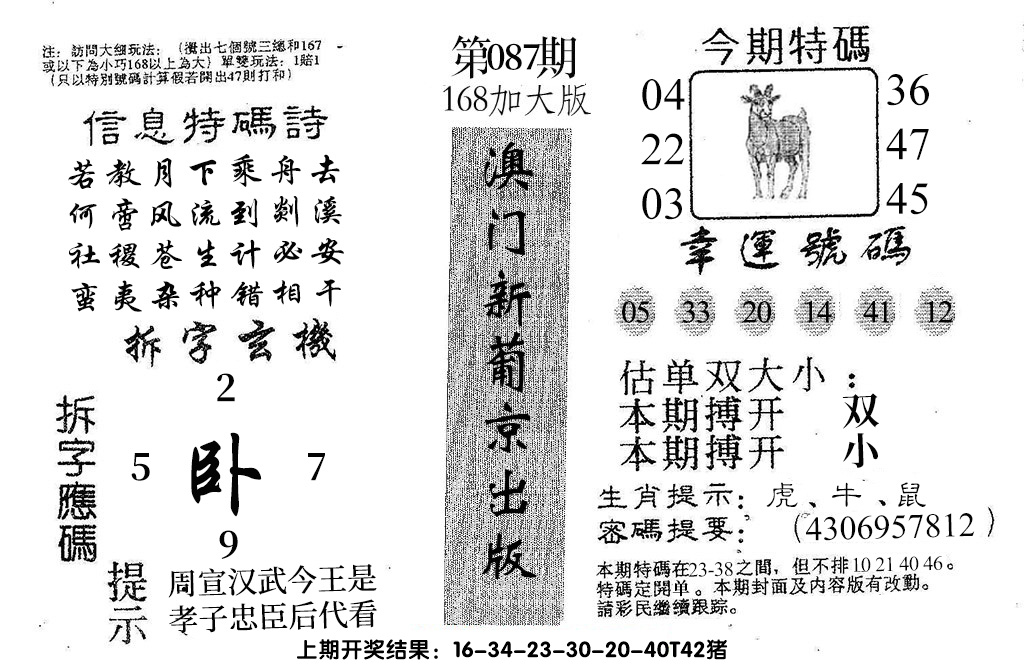 注：訪問大细玩法：（攪出七個號三總和167
或以下為小巧168以上為大）單雙玩法：1賠1
（只以特別號碼計算假若開出47則打和）
信息特碼詩
若教月下乘舟去
何啻风流到剡溪
社稷苍生计必安
蛮夷杂种错相干
拆字玄機
2
5 卧 7
9
拆字應碼
提示
周宣汉武今王是
孝子忠臣后代看
第087期
168加大版
澳门新葡京出版
今期特碼
04 36
22 47
03 45
幸運號碼
05 33 20 14 41 12
估单双大小：
本期搏开 双
本期搏开 小
生肖提示：虎、牛、鼠
密碼提要：（4306957812）
本期特碼在23-38之間，但不排10 21 40 46。
特碼定開单。本期封面及内容版有改動。
請彩民繼續跟踪。
上期开奖结果：16-34-23-30-20-40T42猪